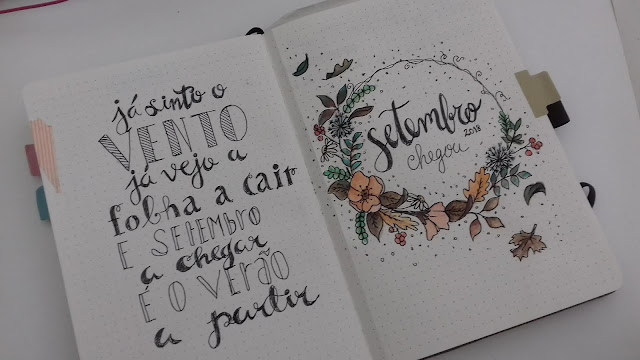 já sinto o
VENTO
já vejo a
folha a cair
E SETEMBRO
a chegar
É O VERÃO
a partir
setembro
2018
chegou